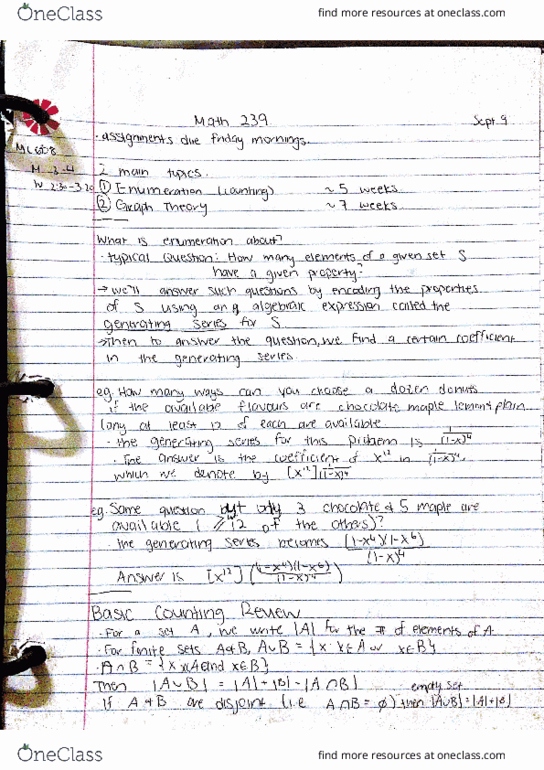 OneClass
find more resources at oneclass.com
Math 239
Sept 9
· assignments due friday mornings.
M 3-4
2 main topics.
W 2:30-3:20
① Enumeration (counting) ~ 5 weeks
② Graph Theory ~ 7 weeks
What is enumeration about?
· typical Question: How many elements of a given set S
have a given property?
→ we'll answer such questions by encoding the properties
of S using an algebraic expression called the
generating series for S
→ Then to answer the question, we find a certain coefficient
in the generating series.
eg. How many ways can you choose a dozen donuts
if the available flavours are chocolate maple lemon plain
(any at least 12 of each are available
· the generating series for this problem is 1/(1-x)⁴
· The answer is the coefficient of x¹² in 1/(1-x)⁴,
which we denote by [x¹²] 1/(1-x)⁴
eg. Same question but only 3 chocolate & 5 maple are
available ( ≥ 12 of the others)?
· the generating series becomes (1-x⁴)(1-x⁶)/(1-x)⁴
Answer is [x¹²] ((1-x⁴)(1-x⁶)/(1-x)⁴)
Basic Counting Review
· For a set A, we write |A| for the # of elements of A
· For finite sets A & B, A∪B = {x: x∈A or x∈B}
· A∩B = {x x∈A and x∈B}
Then |A∪B| = |A| + |B| - |A∩B|
empty set
If A & B are disjoint (i.e A∩B = ∅) then |A∪B| = |A|+|B|
OneClass
find more resources at oneclass.com